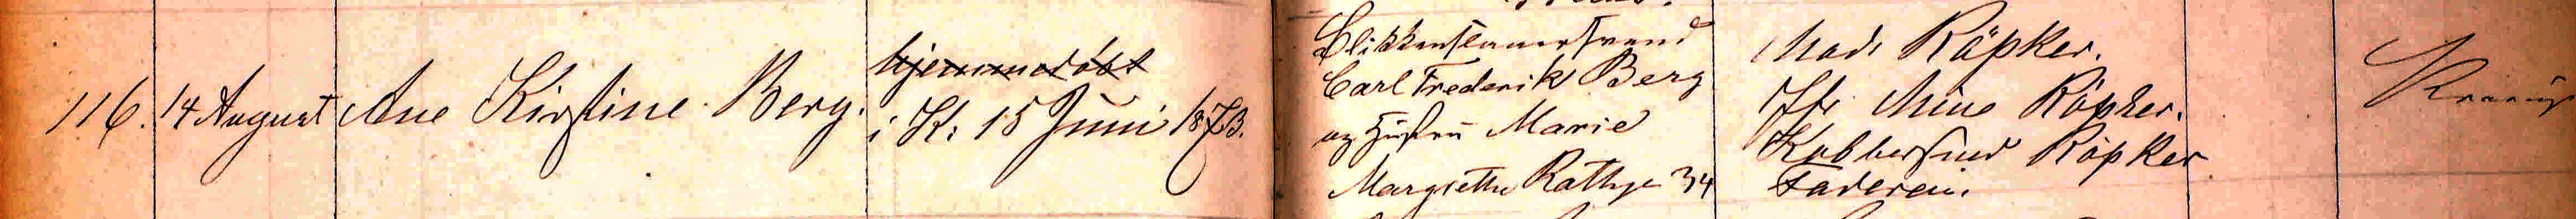 116.
14 August
Ane Kirstine Berg.
hjemmedöbt
i K: 15 Juni 1873.
Blikkenslagersvend
Carl Frederik Berg
og Hustru Marie
Margrethe Rathje 34
Mad. Röpker.
Jfr. Mine Röpker.
Kobbersmed Röpker
Faderen.